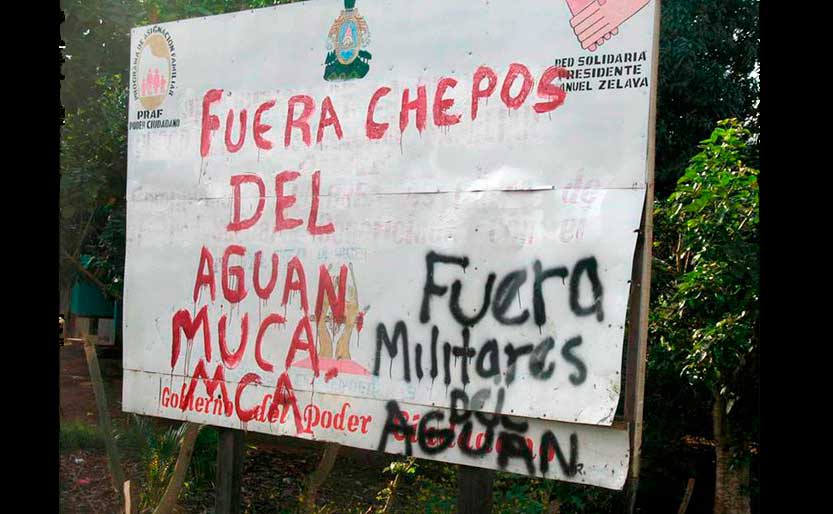 PROGRAMA DE ASIGNACION FAMILIAR
PRAF
PODER CIUDADANO
RED SOLIDARIA
PRESIDENTE
ANUEL ZELAYA
FUERA CHEPOS
DEL
AGUAN,
MUCA.
MCA
Fuera
Militares
DEL
AGUAN
Gobierno del Poder Ciudadano